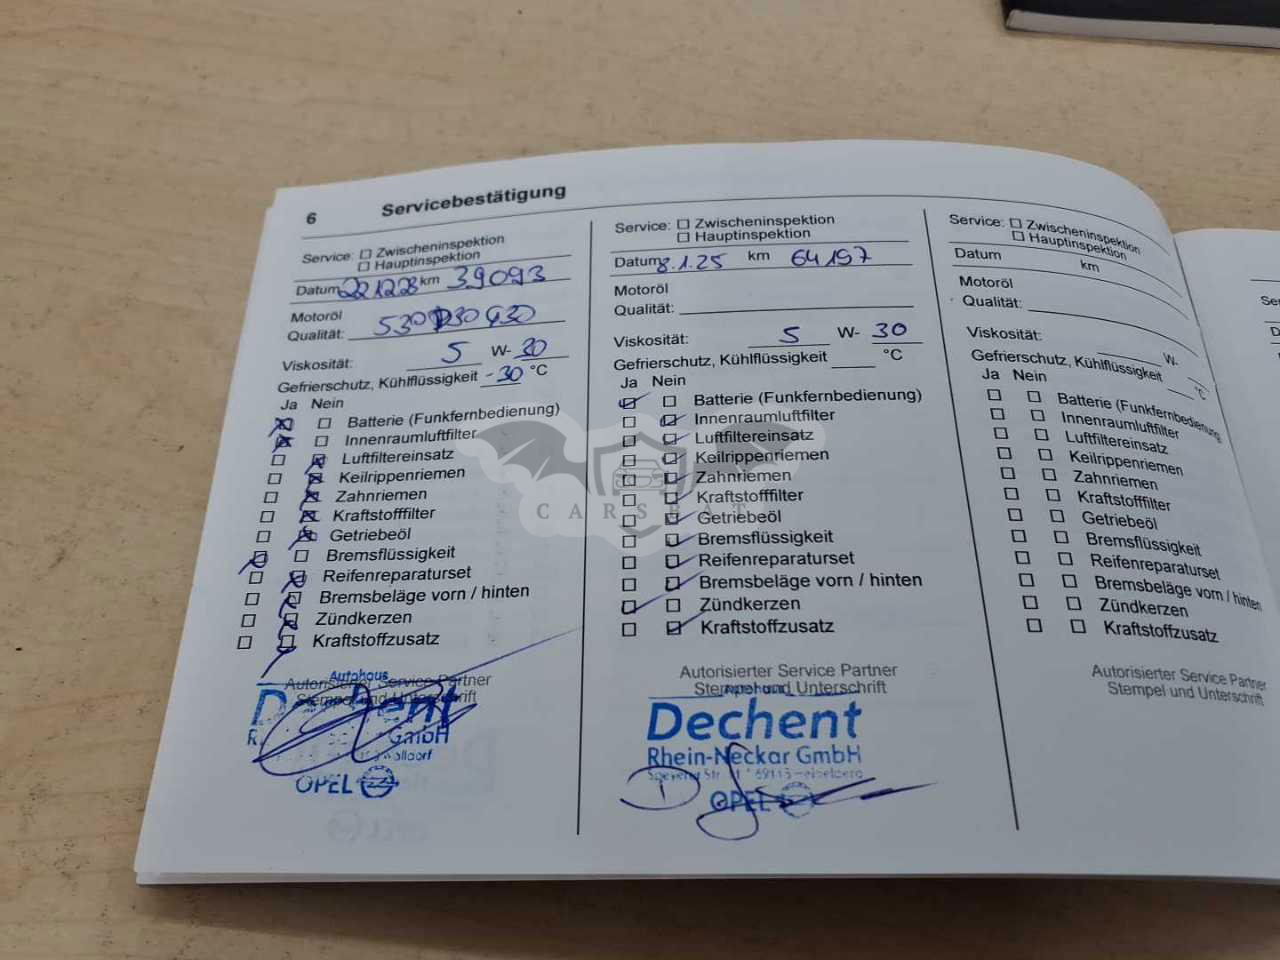 6 Servicebestätigung
Service: Zwischeninspektion
Hauptinspektion
Datum 22.12.23 km 39093
Motoröl
Qualität: 530
Viskosität: 5 W- 30
Gefrierschutz, Kühlflüssigkeit -30 °C
Ja Nein
Batterie (Funkfernbedienung)
Innenraumluftfilter
Luftfiltereinsatz
Keilrippenriemen
Zahnriemen
Kraftstofffilter
Getriebeöl
Bremsflüssigkeit
Reifenreparaturset
Bremsbeläge vorn / hinten
Zündkerzen
Kraftstoffzusatz
Autorisierter Service Partner
Stempel und Unterschrift
Autohaus
Dechent
GmbH
Walldorf
OPEL
Service: Zwischeninspektion
Hauptinspektion
Datum 8.1.25 km 64197
Motoröl
Qualität:
Viskosität: 5 W- 30
Gefrierschutz, Kühlflüssigkeit °C
Ja Nein
Batterie (Funkfernbedienung)
Innenraumluftfilter
Luftfiltereinsatz
Keilrippenriemen
Zahnriemen
Kraftstofffilter
Getriebeöl
Bremsflüssigkeit
Reifenreparaturset
Bremsbeläge vorn / hinten
Zündkerzen
Kraftstoffzusatz
Autorisierter Service Partner
Stempel und Unterschrift
Autohaus
Dechent
Rhein-Neckar GmbH
Speyerer Str.
OPEL
Service: Zwischeninspektion
Hauptinspektion
Datum km
Motoröl
Qualität:
Viskosität: W-
Gefrierschutz, Kühlflüssigkeit °C
Ja Nein
Batterie (Funkfernbedienung)
Innenraumluftfilter
Luftfiltereinsatz
Keilrippenriemen
Zahnriemen
Kraftstofffilter
Getriebeöl
Bremsflüssigkeit
Reifenreparaturset
Bremsbeläge vorn / hinten
Zündkerzen
Kraftstoffzusatz
Autorisierter Service Partner
Stempel und Unterschrift
CARSBAT